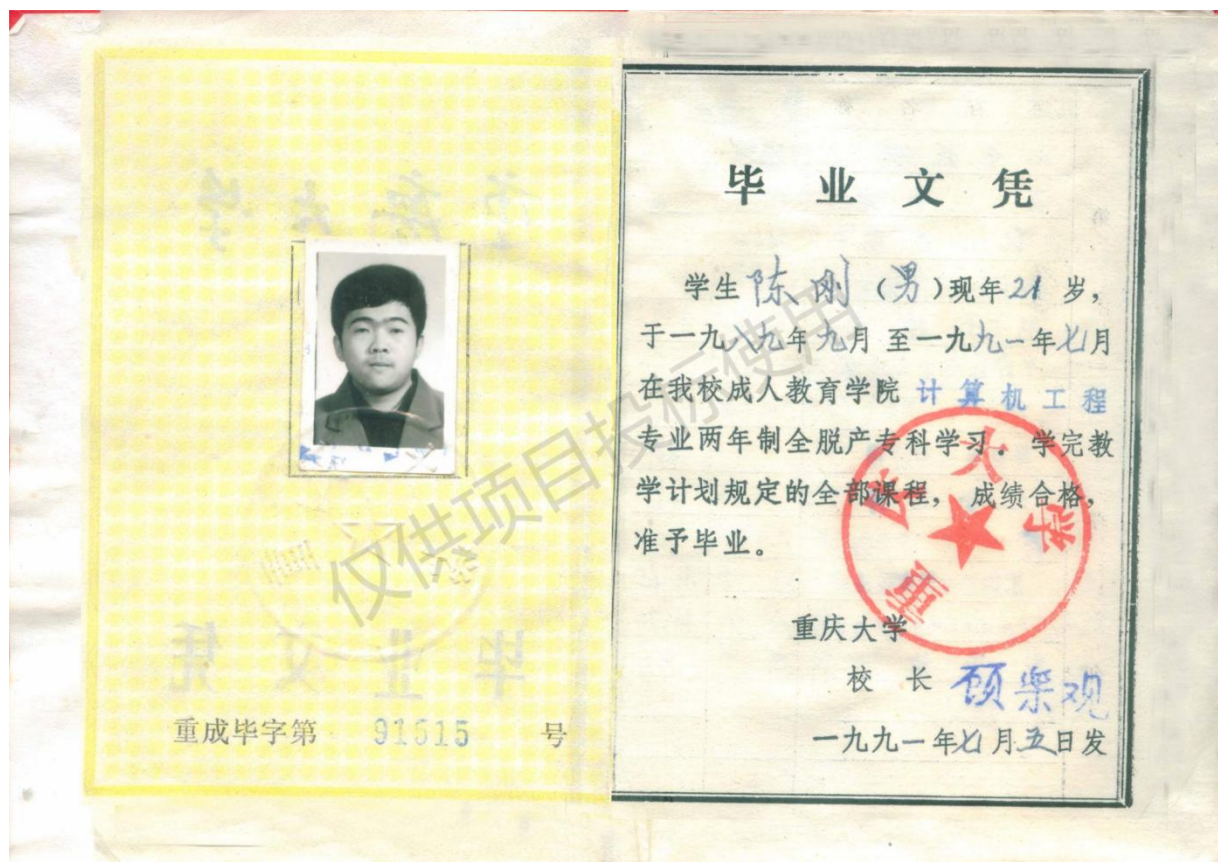 重成毕字第 91515 号
毕业文凭
学生陈刚（男）现年21岁，
于一九八九年九月至一九九一年七月
在我校成人教育学院计算机工程
专业两年制全脱产专科学习。学完教
学计划规定的全部课程，成绩合格，
准予毕业。
重庆大学
校长 顾乐观
一九九一年七月五日发
重庆大学
仅供项目投标使用